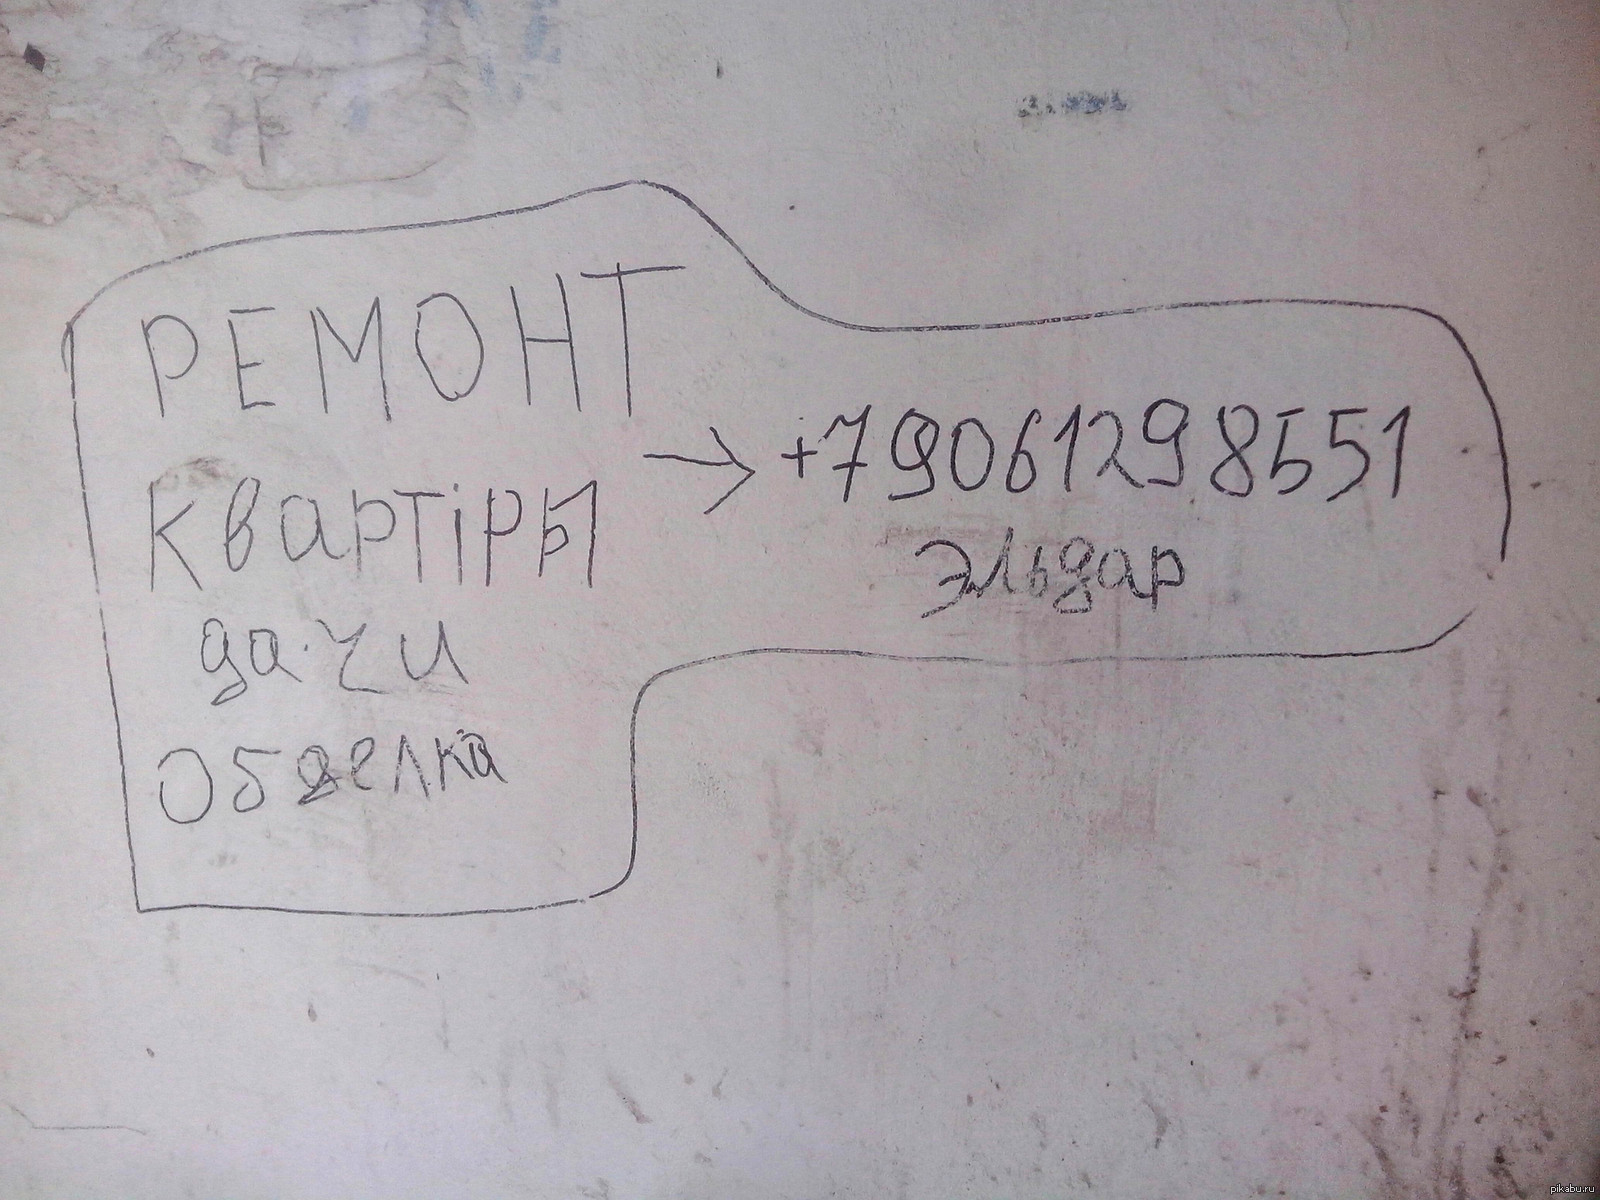 РЕМОНТ
квартiры
дачи
Обделка
→ +79061298551
Эльдар
pikabu.ru